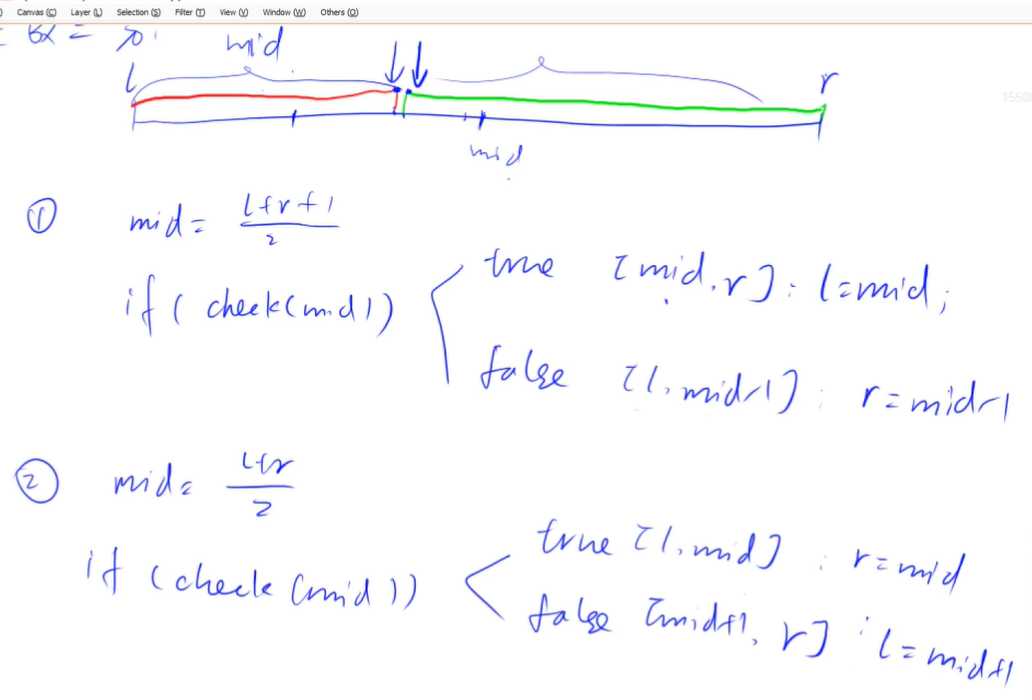 Canvas (C) Layer (L) Selection (S) Filter (T) View (V) Window (W) Others (O)
mid
l r
mid
① mid = l+r+1
2
if ( check(mid)) true [mid, r] : l=mid;
false [l, mid-1] : r=mid-1
② mid = l+r
2
if (check (mid)) true [l, mid] : r=mid
false [mid+1, r] : l=mid+1